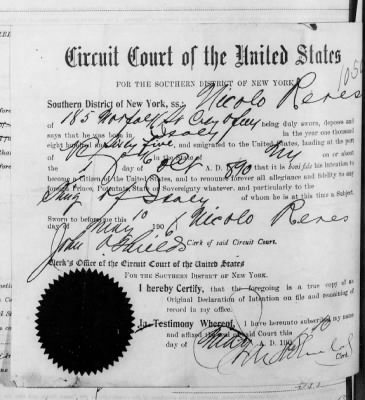 Circuit Court of the United States
FOR THE SOUTHERN DISTRICT OF NEW YORK.
Southern District of New York, ss. Nicolo Renes
of 185 Norfolk St City being duly sworn, deposes and
says that he was born in Italy in the year one thousand
eight hundred and five, and emigrated to the United States, landing at the port
of NY in the State of NY on or about
1 day of A. D. 1890 that it is bona fide his intention to
become a Citizen of the United States, and to renounce forever all allegiance and fidelity to any
foreign Prince, Potentate, State or Sovereignty whatever, and particularly to the
King of Italy of whom he is at this time a Subject.
Sworn to before me this 10
day of May 1906 Nicolo Renes
John A Shields Clerk of said Circuit Court.
Clerk's Office of the Circuit Court of the United States
FOR THE SOUTHERN DISTRICT OF NEW YORK.
I hereby Certify, that the foregoing is a true copy of an
Original Declaration of Intention on file and remaining of
record in my office.
In Testimony Whereof, I have hereunto subscribed my name
and affixed the seal of said Court this 10
day of May A. D. 190
Clerk.